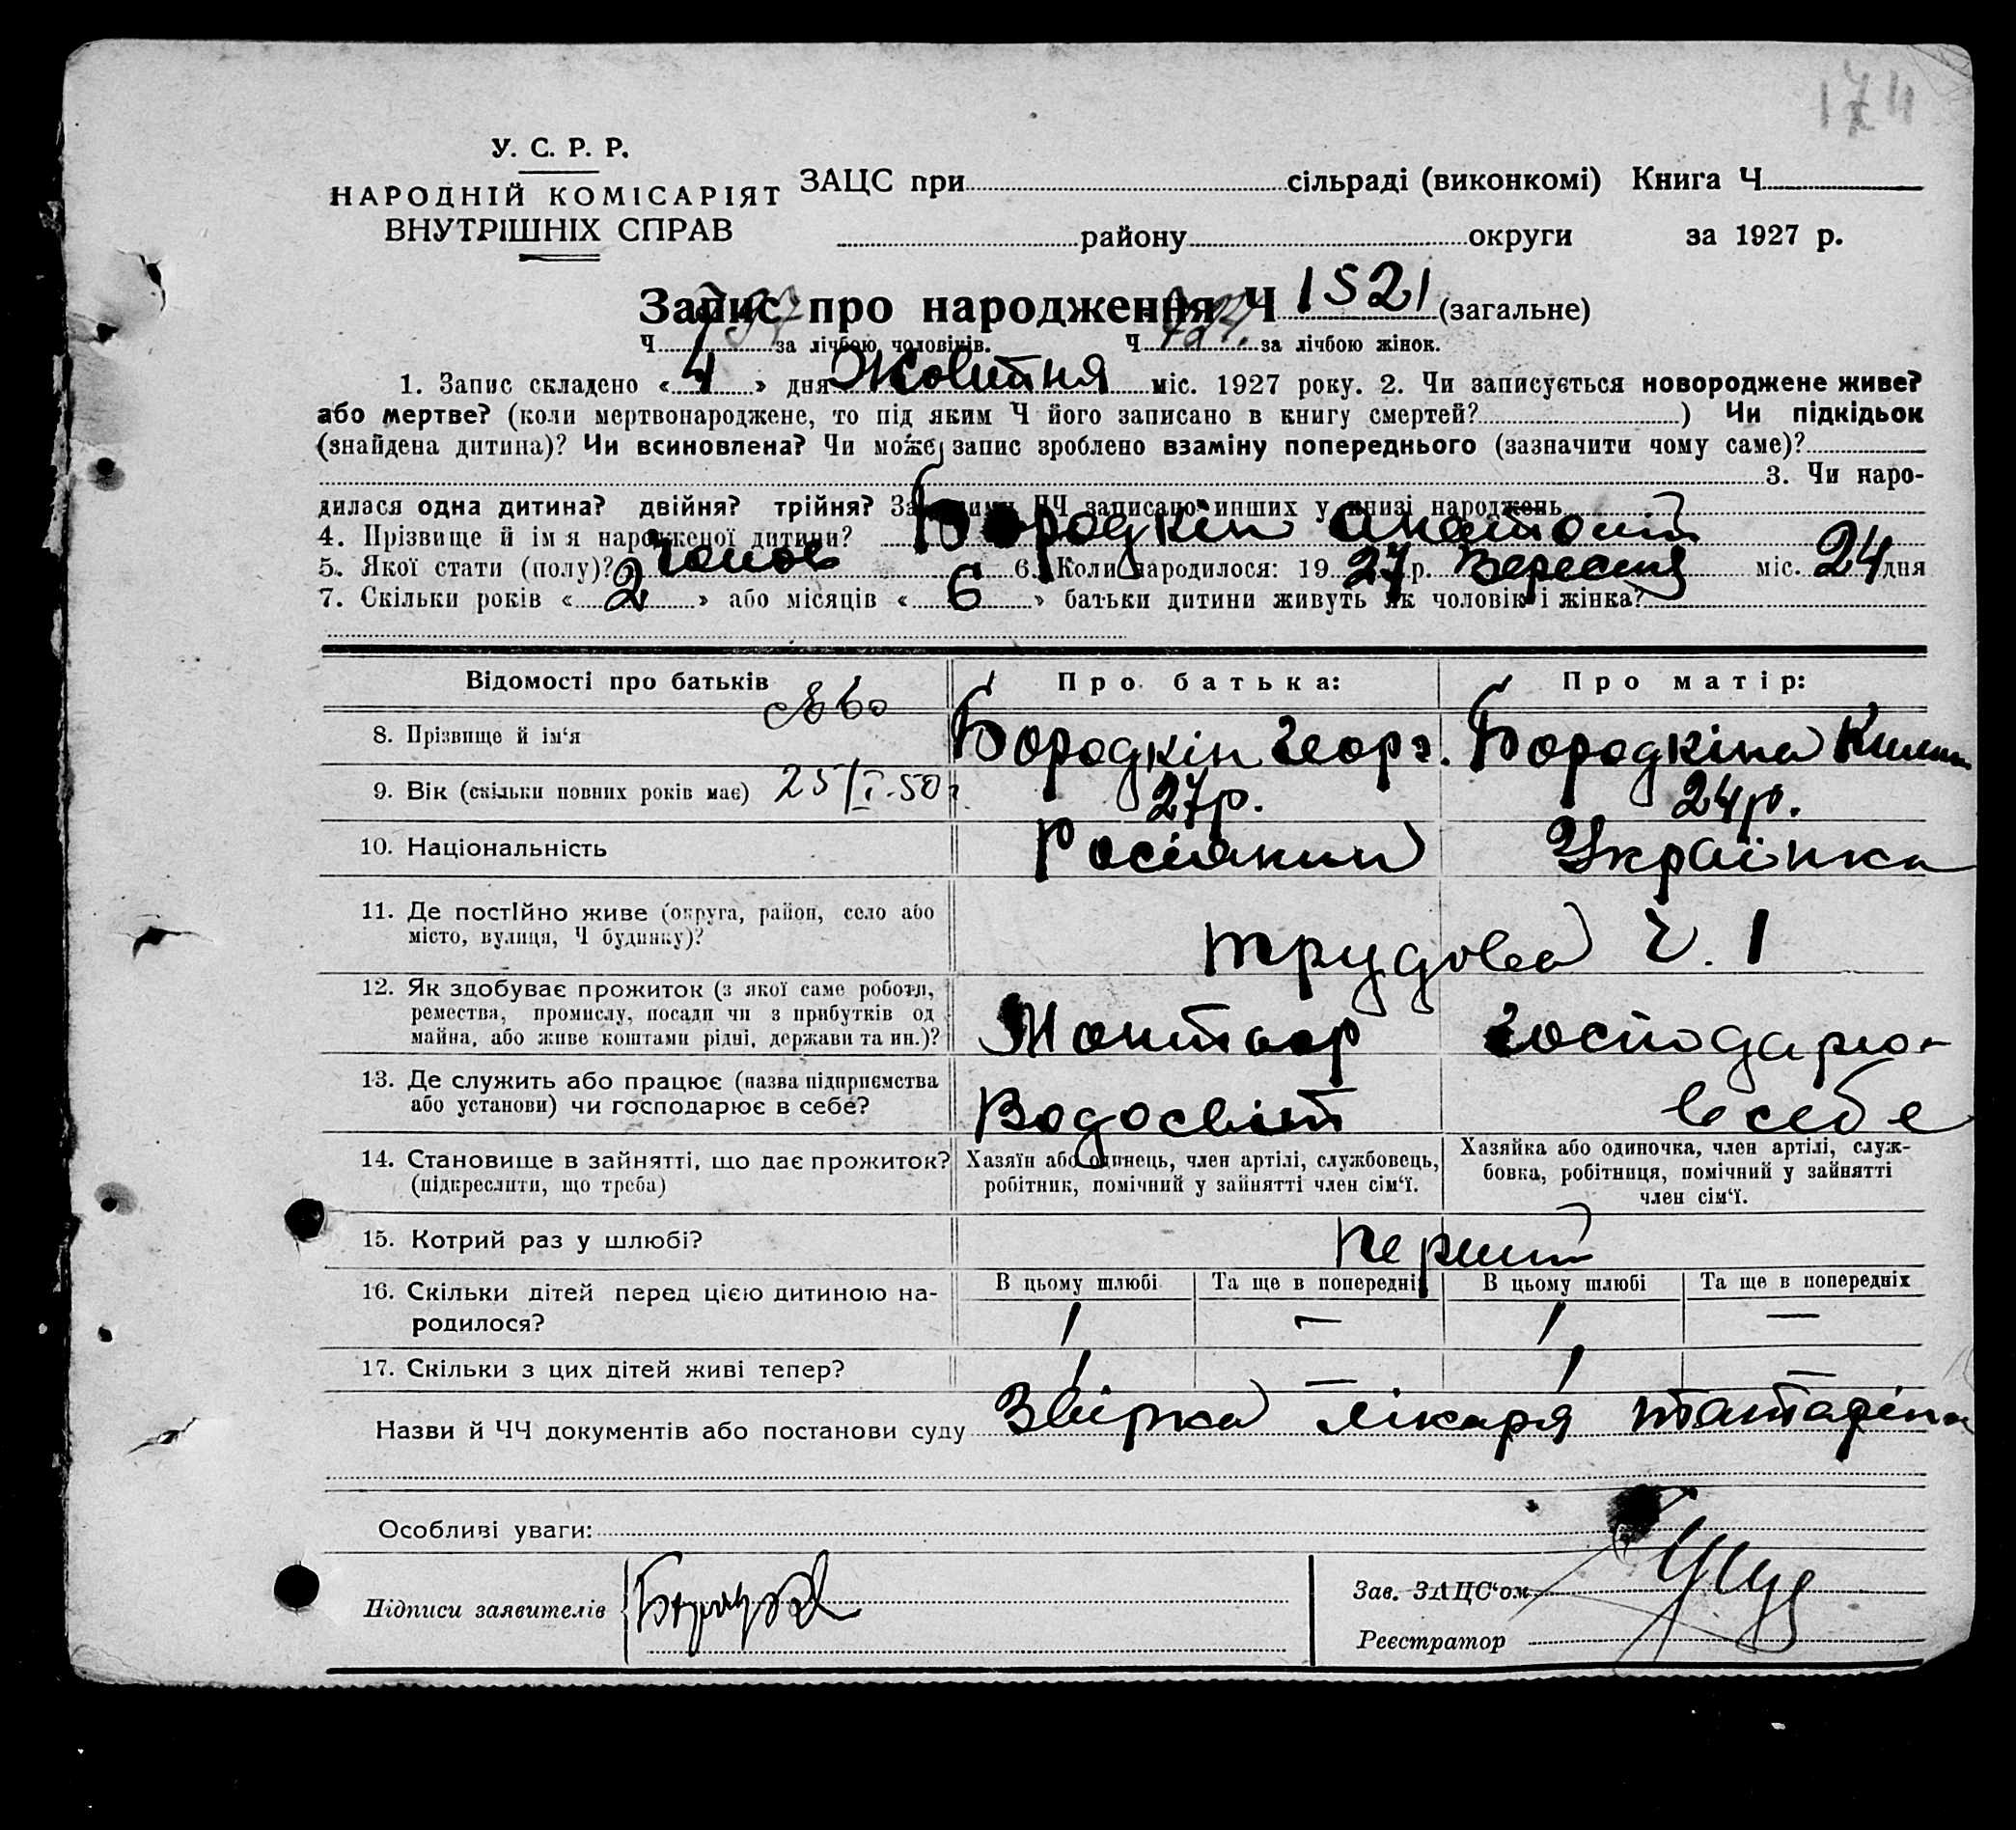 174
У. С. Р. Р.
НАРОДНІЙ КОМІСАРІЯТ
ВНУТРІШНІХ СПРАВ
ЗАЦС при сільраді (виконкомі) Книга Ч
району округи за 1927 р.
Запис про народження Ч 1521 (загальне)
Ч 797 за лічбою чоловіків. Ч 724 за лічбою жінок.
1. Запис складено « 4 » дня Жовтня міс. 1927 року. 2. Чи записується новороджене живе?
або мертве? (коли мертвонароджене, то під яким Ч його записано в книгу смертей? ) Чи підкідьок
(знайдена дитина)? Чи всиновлена? Чи може запис зроблено взаміну попереднього (зазначити чому саме)?
3. Чи наро-
дилася одна дитина? двійня? трійня? За якими ЧЧ записано инших у книзі народжень
4. Прізвище й ім я народженої дитини? Бородкін Анатоній
5. Якої стати (полу)? чолов 6. Коли народилося: 19 27 р. Вересня міс. 24 дня
7. Скільки років « 2 » або місяців « 6 » батьки дитини живуть як чоловік і жінка?
Відомості про батьків Про батька: Про матір:
8. Прізвище й ім‘я Бородкін Георг. Бородкіна
9. Вік (скільки повних років має) 25/I-50 г 27р. 24р.
10. Національність Росіянин Українка
11. Де постійно живе (округа, район, село або
місто, вулиця, Ч будинку)? Трудова ч. 1
12. Як здобуває прожиток (з якої саме роботи,
ремества, промислу, посади чи з прибутків од
майна, або живе коштами рідні, держави та ин.)? Монтьор господарю-
13. Де служить або працює (назва підприємства
або установи) чи господарює в себе? Водосвіт в себе
14. Становище в зайнятті, що дає прожиток?
(підкреслити, що треба)
Хазяїн або одинець, член артілі, службовець,
робітник, помічний у зайнятті член сім‘ї.
Хазяйка або одиночка, член артілі, служ-
бовка, робітниця, помічний у зайнятті
член сім‘ї.
15. Котрий раз у шлюбі? перший
16. Скільки дітей перед цією дитиною на-
родилося?
В цьому шлюбі Та ще в попередніх В цьому шлюбі Та ще в попередніх
1 — 1 —
17. Скільки з цих дітей живі тепер? 1 — 1 —
Назви й ЧЧ документів або постанови суду Звірка лікаря
Особливі уваги:
Підписи заявителів
Зав. ЗАЦС‘ом
Реєстратор